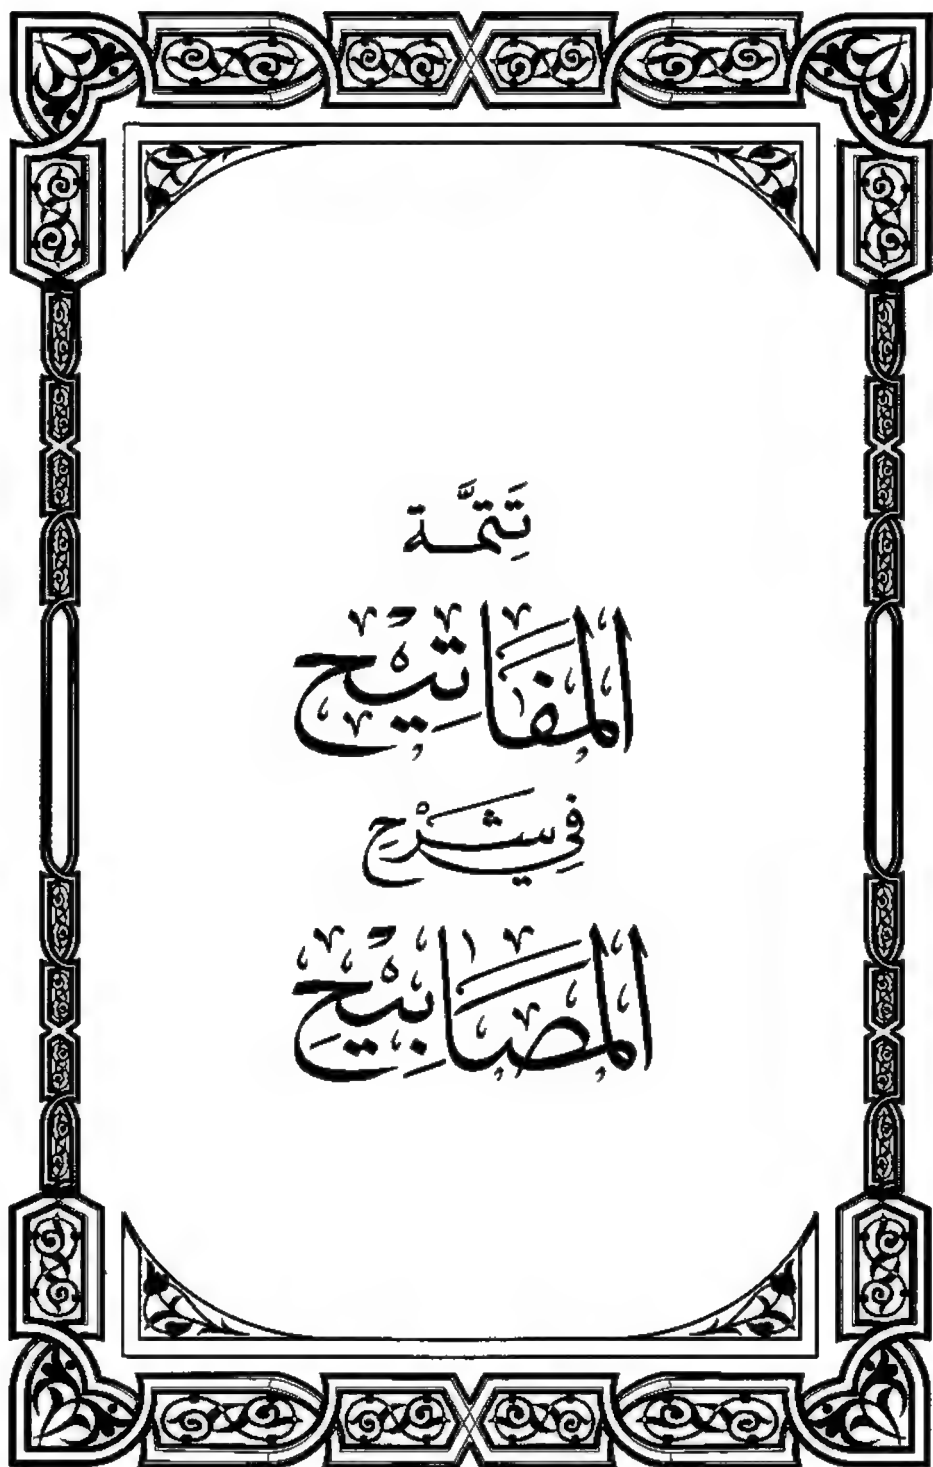 تَتِمَّة
المفَاتِيْح
فِي شَرْحِ
المصَابِيْحِ